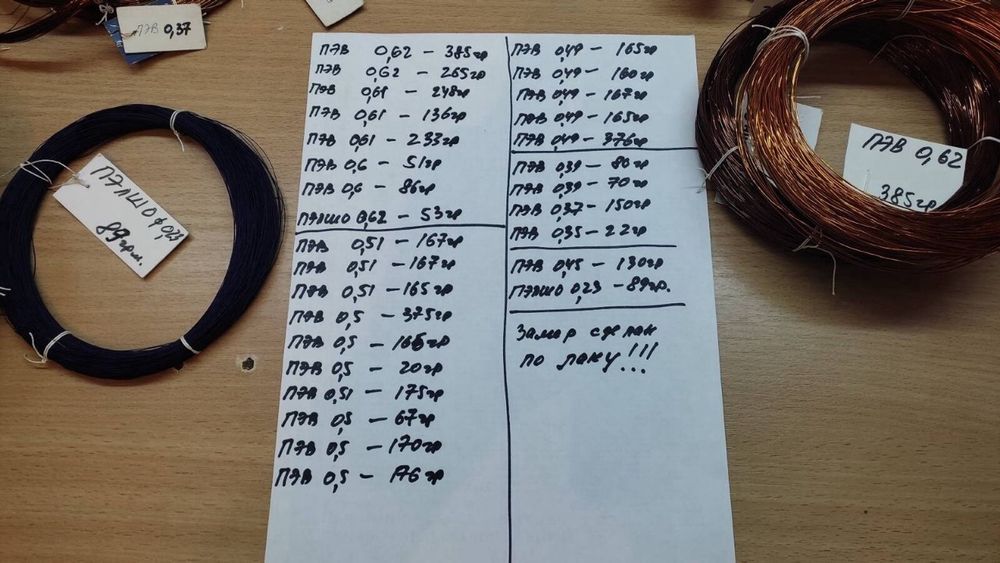 ПЭВ 0,37
ПЭЛШО ф 0,23
89грм.
ПЭВ 0,62 – 385гр
ПЭВ 0,62 – 265гр
ПЭВ 0,61 – 248гр
ПЭВ 0,61 – 136гр
ПЭВ 0,61 – 233гр
ПЭВ 0,6 – 51гр
ПЭВ 0,6 – 86гр
ПЭЛШО 0,62 – 53гр
ПЭВ 0,51 – 167гр
ПЭВ 0,51 – 167гр
ПЭВ 0,51 – 165гр
ПЭВ 0,5 – 375гр
ПЭВ 0,5 – 166гр
ПЭВ 0,5 – 20гр
ПЭВ 0,51 – 175гр
ПЭВ 0,5 – 67гр
ПЭВ 0,5 – 170гр
ПЭВ 0,5 – 176гр
ПЭВ 0,49 – 165гр
ПЭВ 0,49 – 160гр
ПЭВ 0,49 – 167гр
ПЭВ 0,49 – 165гр
ПЭВ 0,49 – 376гр
ПЭВ 0,39 – 80гр
ПЭВ 0,39 – 70гр
ПЭВ 0,37 – 150гр
ПЭВ 0,35 – 22гр
ПЭВ 0,45 – 130гр
ПЭЛШО 0,23 – 89гр.
Замер сделан
по лаку!!!
ПЭВ 0,62
385гр